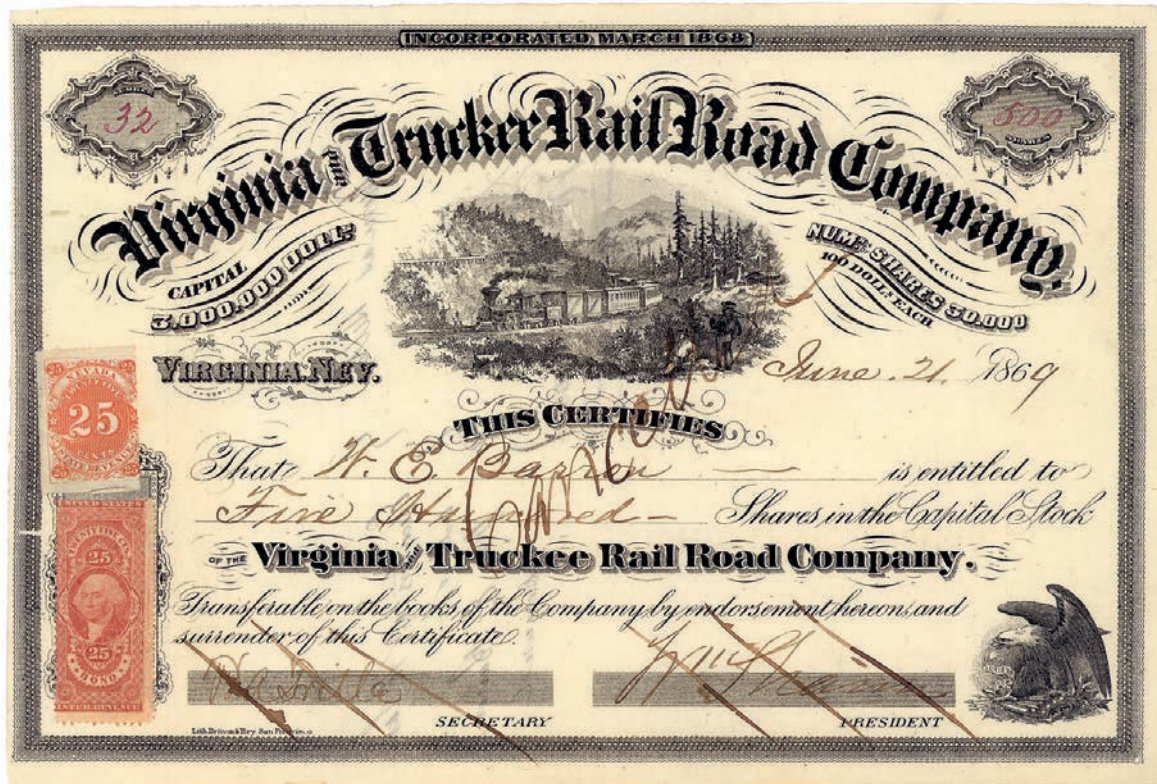 INCORPORATED MARCH 1868
NUMBER
32
500
SHARES
Virginia and Truckee Rail Road Company.
CAPITAL
3,000,000 DOLLS
NUMBR SHARES 30.000
100 DOLLS EACH
VIRGINIA. NEV.
June 21. 1869
THIS CERTIFIES
That W. E. Barron — is entitled to
Five Hundred — Shares in the Capital Stock
OF THE Virginia and Truckee Rail Road Company.
Transferable on the books of the Company by endorsement hereon, and
surrender of this Certificate.
Cancelled
SECRETARY
PRESIDENT
Lith. Britton & Rey. San Francisco
25
NEVADA
25
UNITED STATES
25
25
BOND
INTER. REVENUE